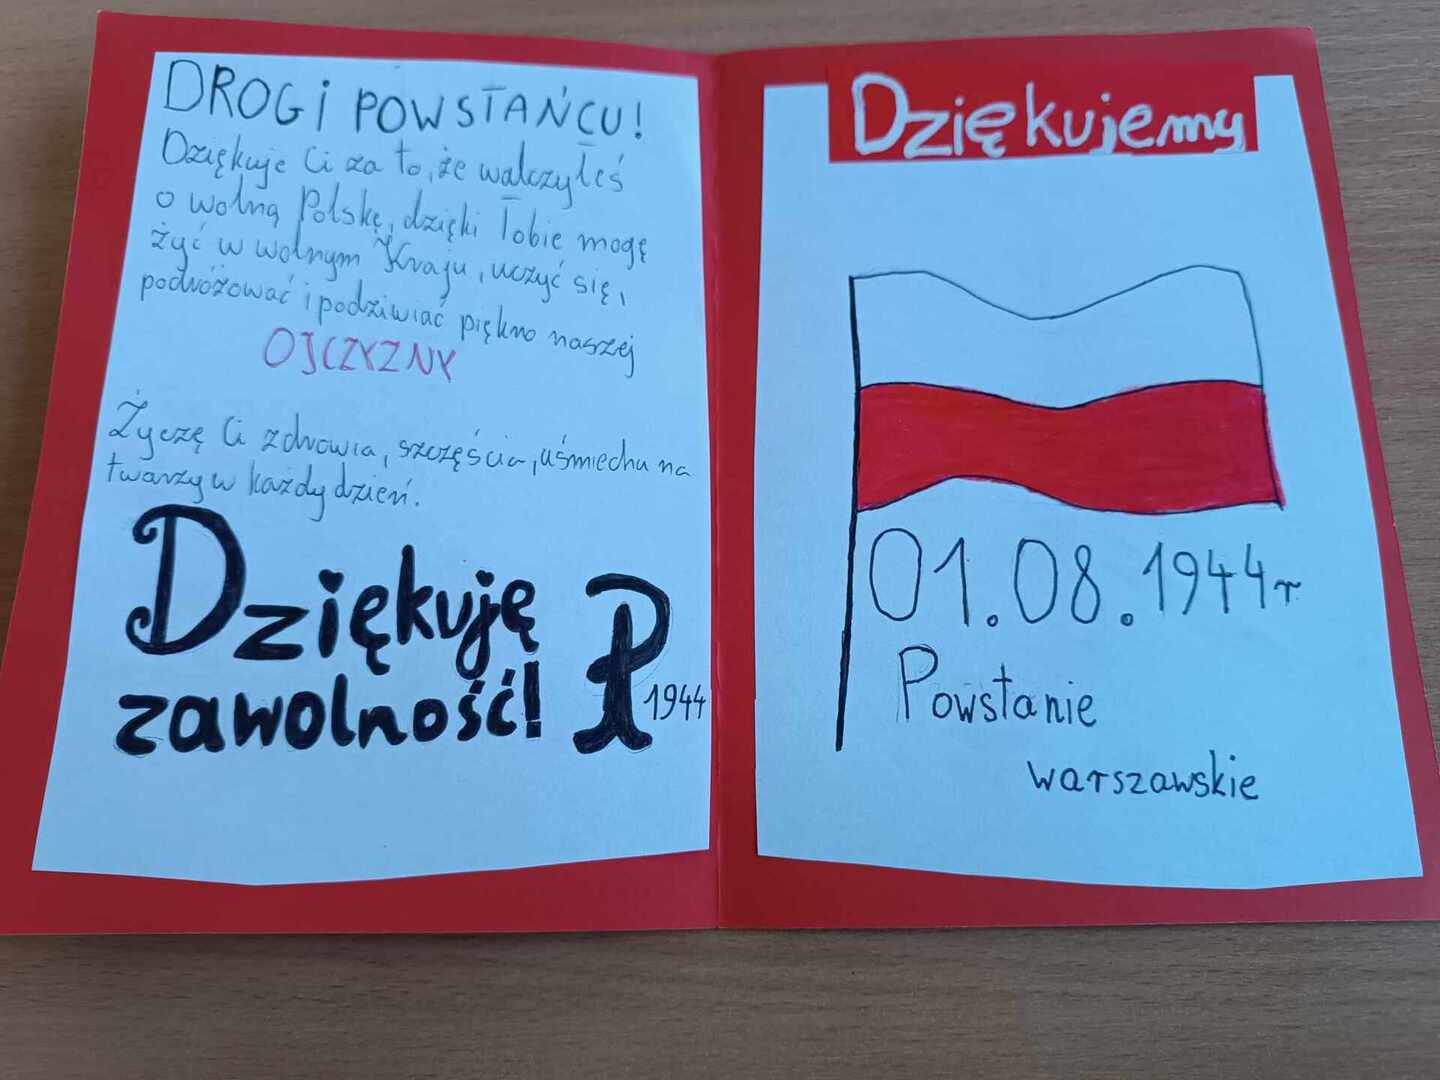 DROGI POWSTAŃCU!
Dziękuje Ci za to, że walczyłeś
o wolną Polskę, dzięki Tobie mogę
żyć w wolnym Kraju, uczyć się,
podróżować i podziwiać piękno naszej
OJCZYZNY
Życzę Ci zdrowia, szczęścia, uśmiechu na
twarzy w każdy dzień.
Dziękuję
zawolność!
1944
Dziękujemy
01.08.1944r.
Powstanie
warszawskie